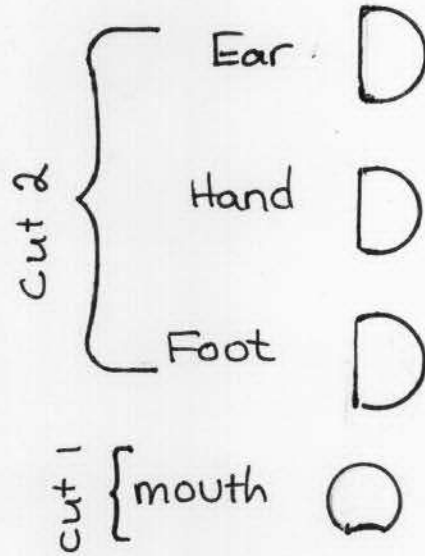 Cut 2
Ear
Hand
Foot
cut 1
mouth